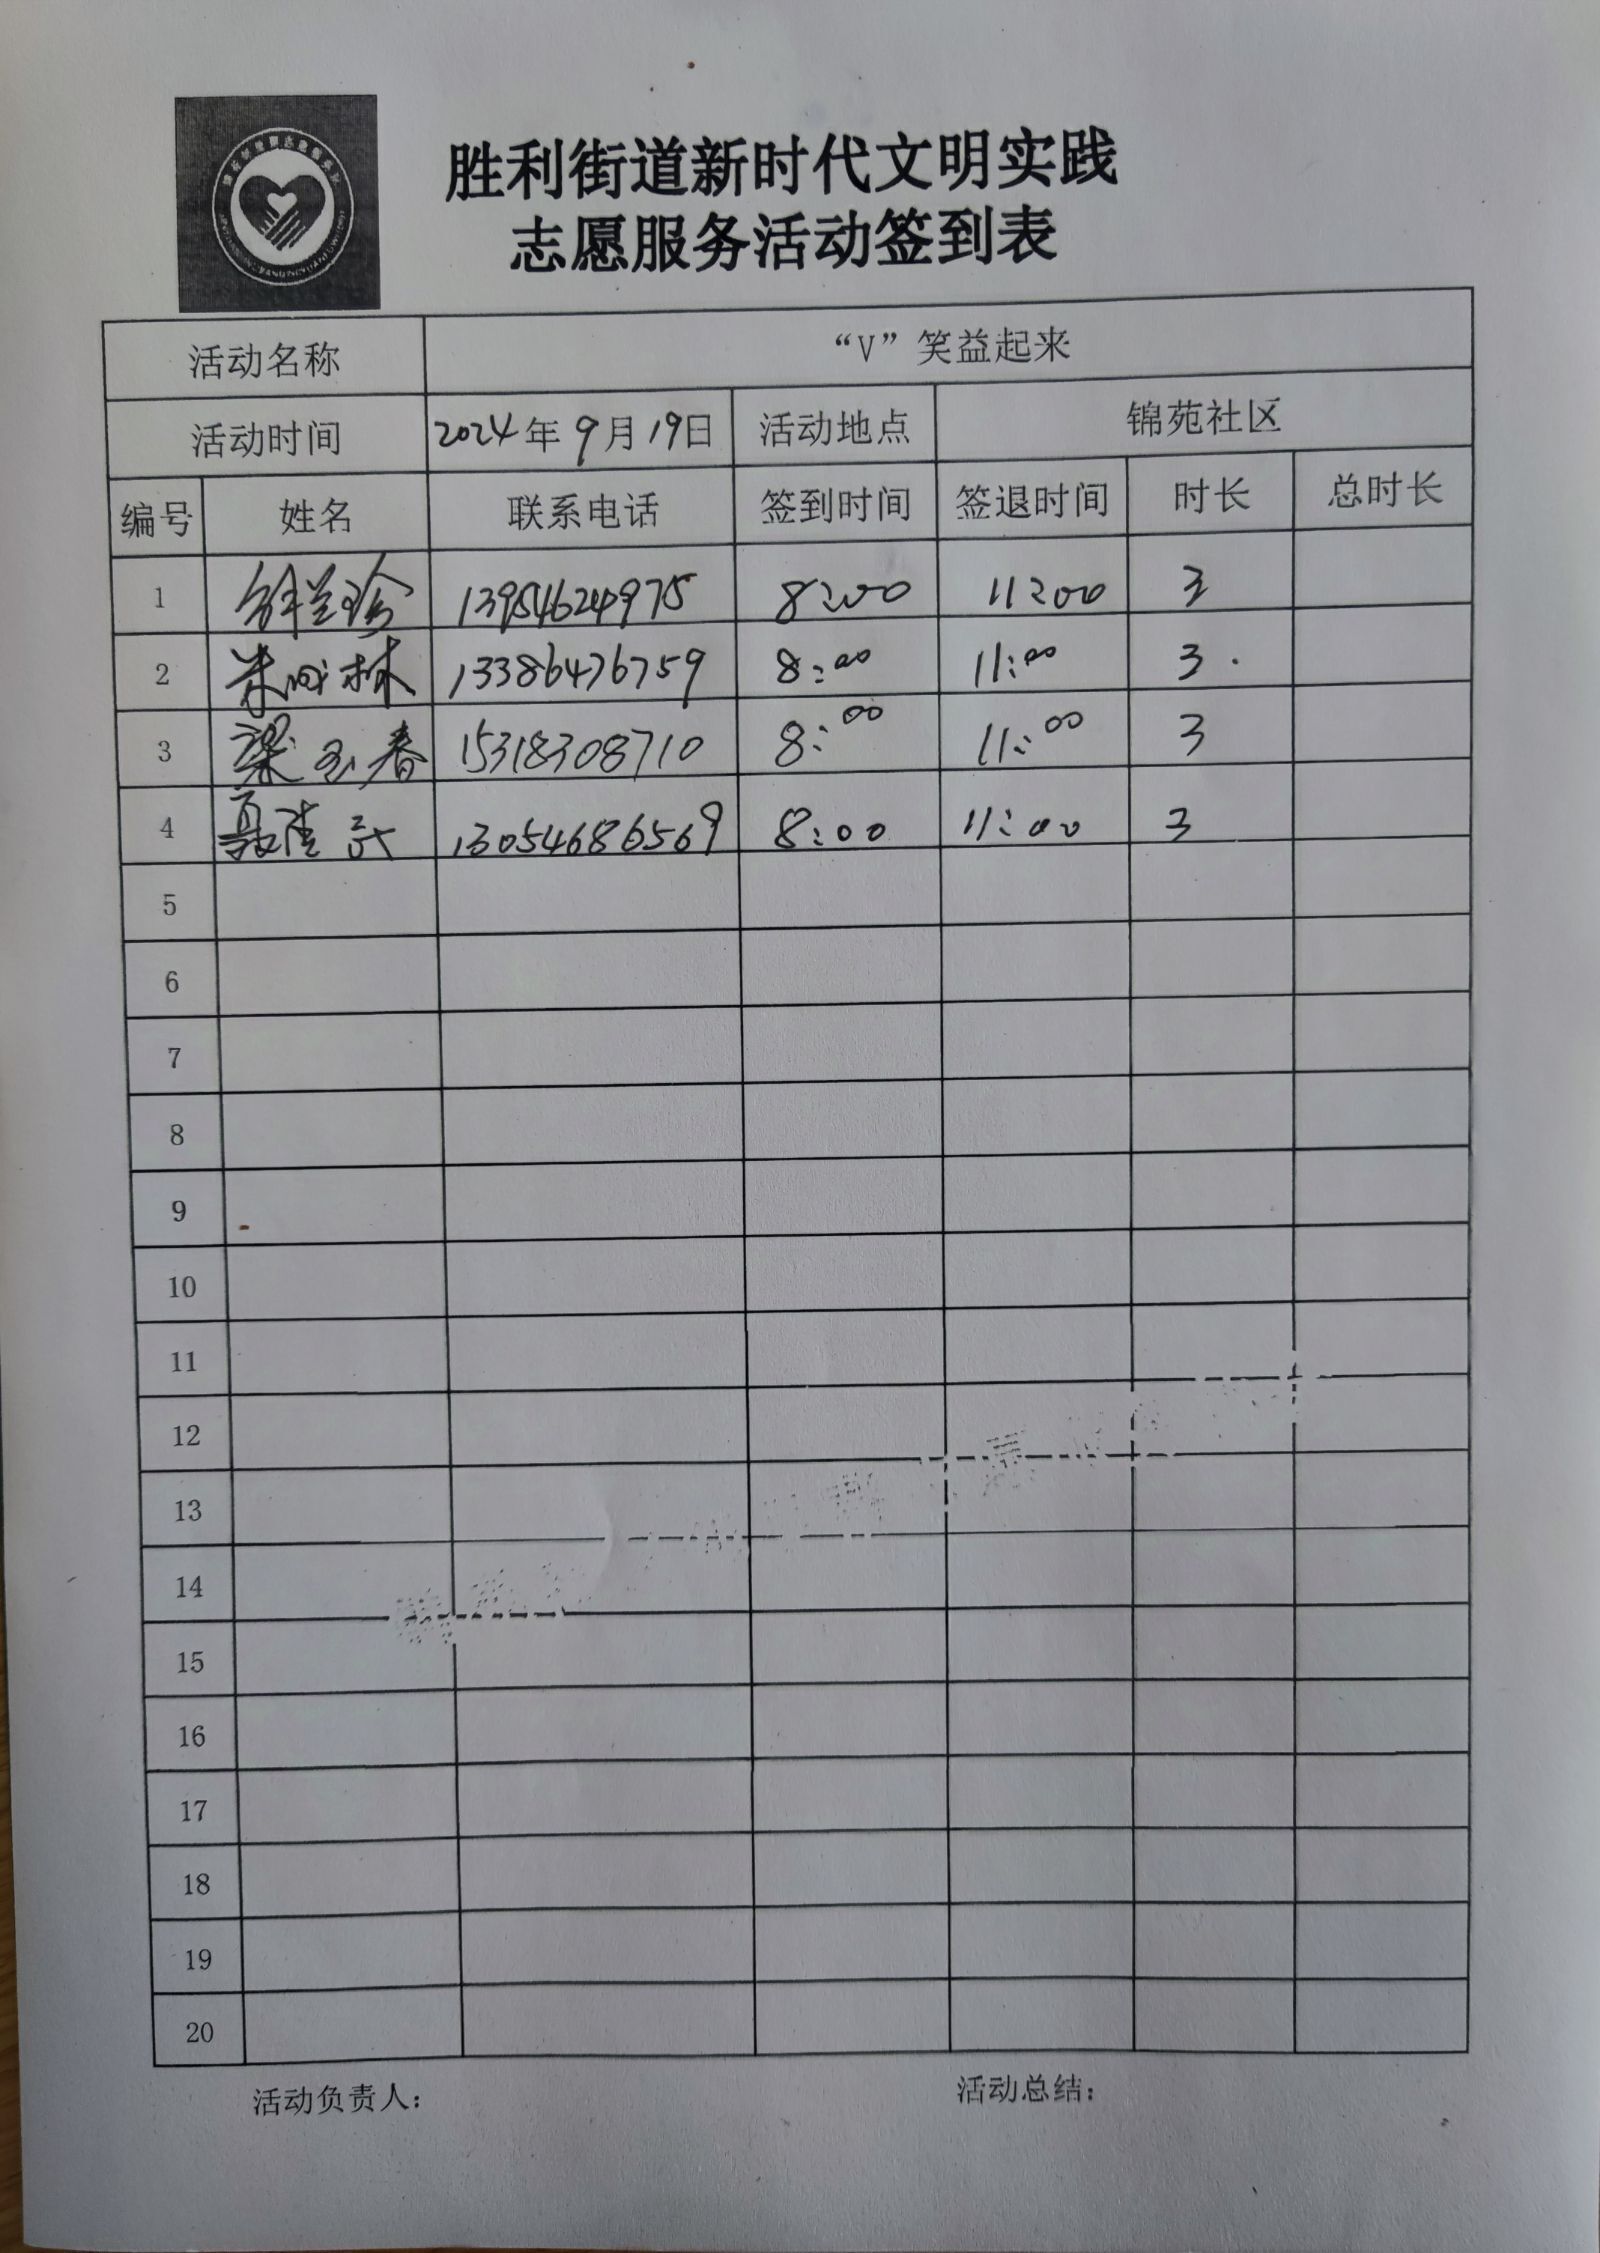 胜利街道新时代文明实践
志愿服务活动签到表
活动名称 “V”笑益起来
活动时间 2024年9月19日 活动地点 锦苑社区
编号 姓名 联系电话 签到时间 签退时间 时长 总时长
1 13954624975 8:00 11:00 3
2 13386476759 8:00 11:00 3
3 梁玉春 15318308710 8:00 11:00 3
4 13054686569 8:00 11:00 3
5
6
7
8
9
10
11
12
13
14
15
16
17
18
19
20
活动负责人: 活动总结: